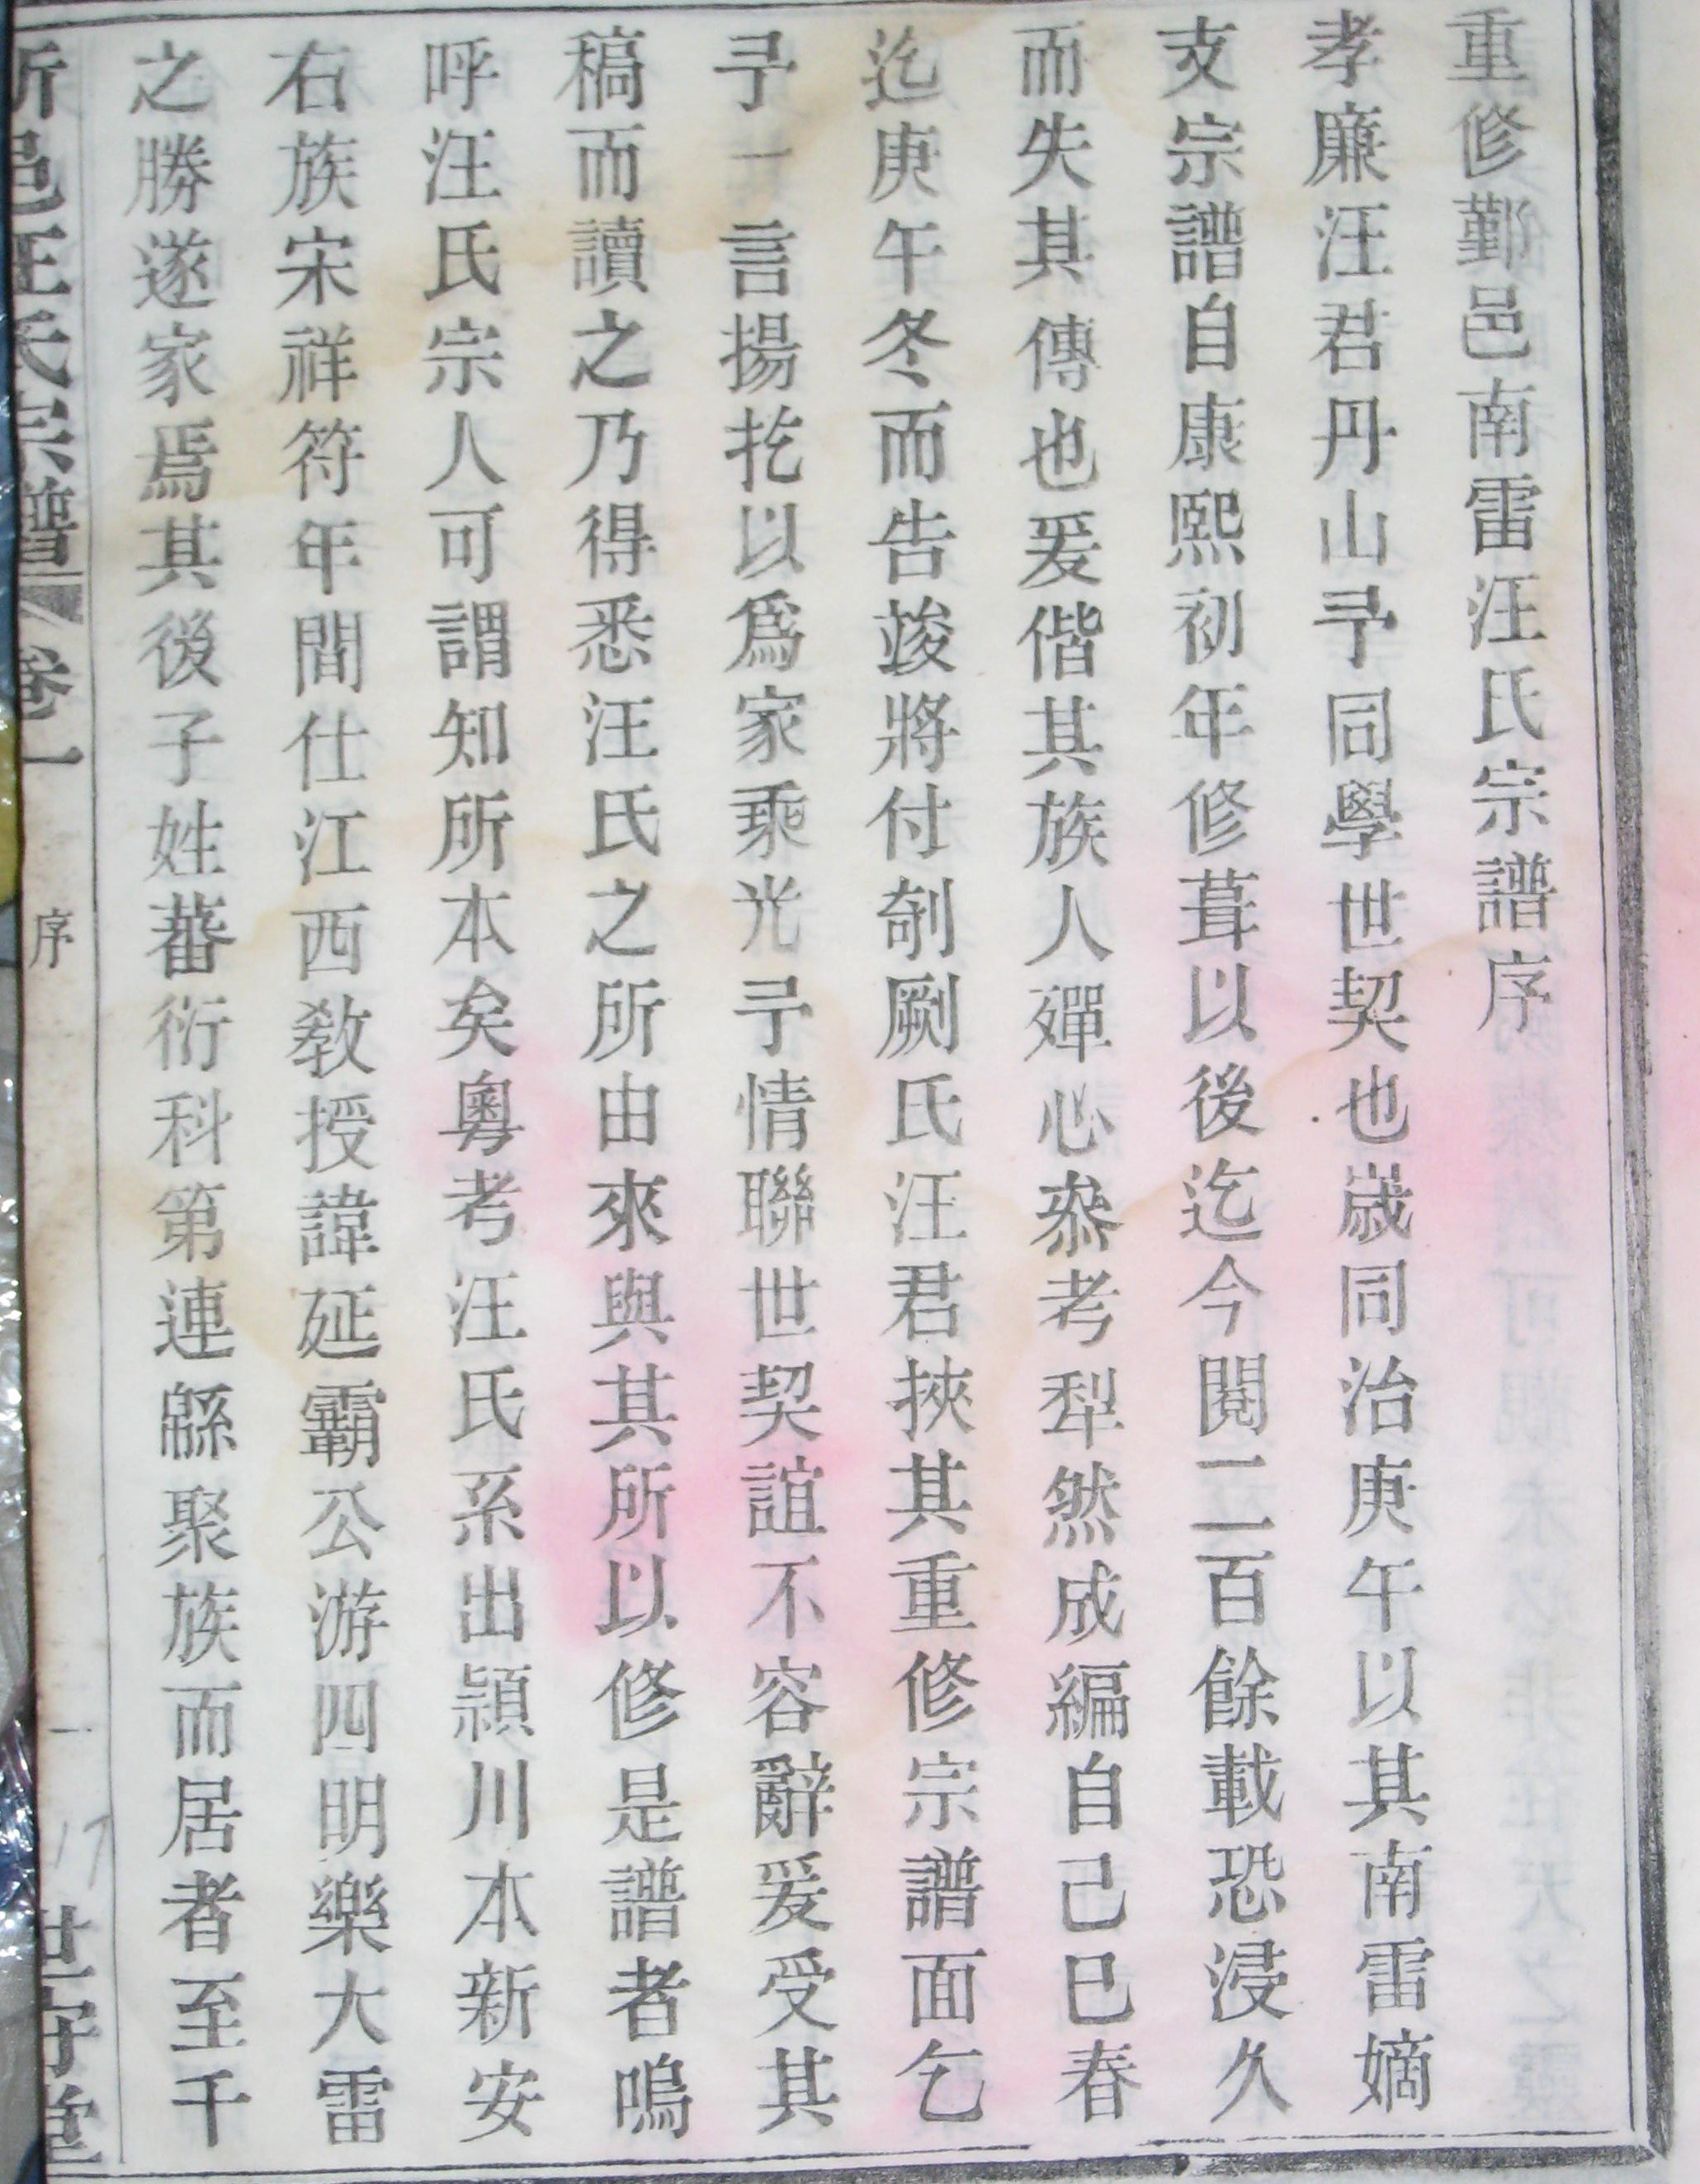 重修鄞邑南雷汪氏宗譜序
孝廉汪君丹山予同學世契也歲同治庚午以其南雷嫡
支宗譜自康熙初年修葺以後迄今閱二百餘載恐浸久
而失其傳也爰偕其族人殫心叅考犁然成編自己巳春
迄庚午冬而告竣將付剞劂氏汪君挾其重修宗譜面乞
予一言揚扢以爲家乘光予情聯世契誼不容辭爰受其
稿而讀之乃得悉汪氏之所由來與其所以修是譜者嗚
呼汪氏宗人可謂知所本矣粵考汪氏系出潁川本新安
右族宋祥符年間仕江西敎授諱延霸公游四明樂大雷
之勝遂家焉其後子姓蕃衍科第連緜聚族而居者至千
邑汪氏宗譜 卷一 序 一 17 世守堂